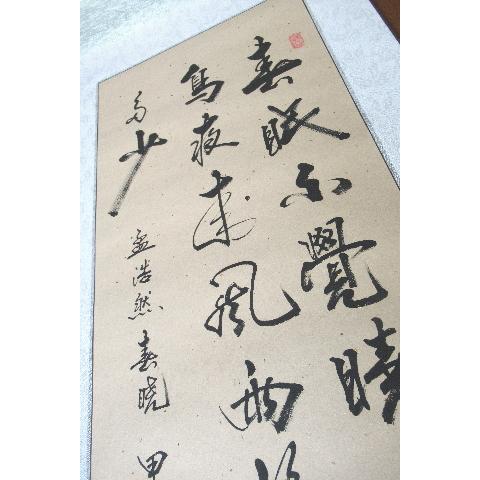 春眠不覺曉
鳥夜来風雨
多少
孟浩然春曉甲